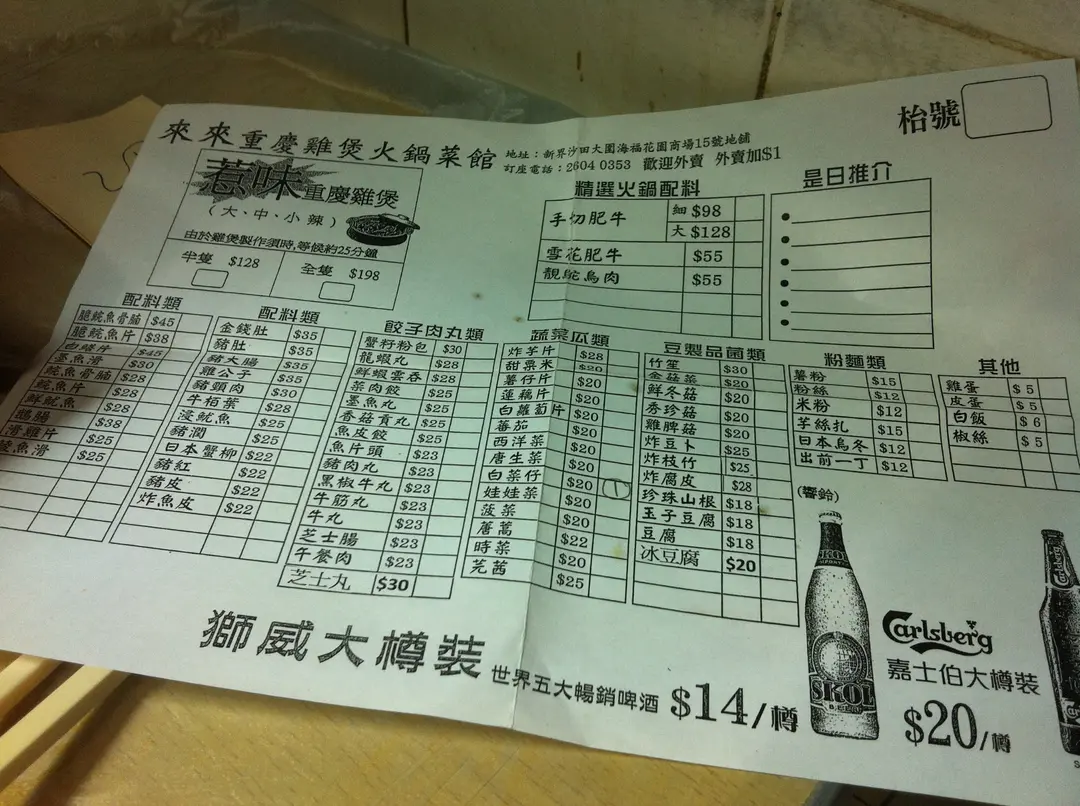 來來重慶雞煲火鍋菜館
地址：新界沙田大圍海福花園商場15號地舖
訂座電話：2604 0353 歡迎外賣 外賣加$1
枱號
惹味重慶雞煲
(大、中、小辣)
由於雞煲製作須時,等候約25分鐘
半隻 $128
全隻 $198
精選火鍋配料
手切肥牛 細 $98
大 $128
雪花肥牛 $55
靚鴕鳥肉 $55
是日推介
配料類
脆鯇魚骨腩 $45
脆鯇魚片 $38
白鱔片 $45
墨魚滑 $30
鯇魚骨腩 $28
鯇魚片 $28
鮮魷魚 $28
鵝腸 $38
滑雞片 $25
鯪魚滑 $25
配料類
金錢肚 $35
豬肚 $35
豬大腸 $35
雞公子 $35
豬頸肉 $30
牛栢葉 $28
浸魷魚 $25
豬潤 $25
日本蟹柳 $22
豬紅 $22
豬皮 $22
炸魚皮 $22
餃子肉丸類
蟹籽粉包 $30
龍蝦丸 $28
鮮蝦雲吞 $28
菜肉餃 $25
墨魚丸 $25
香菇貢丸 $25
魚皮餃 $25
魚片頭 $23
豬肉丸 $23
黑椒牛丸 $23
牛筋丸 $23
牛丸 $23
芝士腸 $23
午餐肉 $23
芝士丸 $30
蔬菜瓜類
炸芋片 $28
甜粟米 $20
薯仔片 $20
蓮藕片 $20
白蘿蔔片 $20
番茄 $20
西洋菜 $20
唐生菜 $20
白菜仔 $20
娃娃菜 $20
菠菜 $20
唐蒿 $22
時菜 $20
芫茜 $25
豆製品菌類
竹笙 $30
金菇菜 $20
鮮冬菇 $20
秀珍菇 $20
雞脾菇 $20
炸豆卜 $25
炸枝竹 $25
炸腐皮 $28
(響鈴)
珍珠山根 $18
玉子豆腐 $18
豆腐 $18
冰豆腐 $20
粉麵類
薯粉 $15
粉絲 $12
米粉 $12
芋絲扎 $15
日本烏冬 $12
出前一丁 $12
其他
雞蛋 $5
皮蛋 $5
白飯 $6
椒絲 $5
獅威大樽裝
世界五大暢銷啤酒 $14/樽
SKOL
SKOL
BEER
Carlsberg
嘉士伯大樽裝
$20/樽